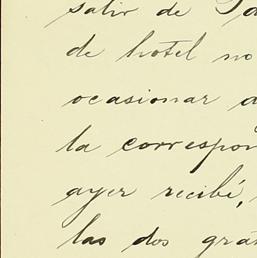 salir de
de hotel no
ocasionar a
la correspon
ayer recibí,
las dos grá